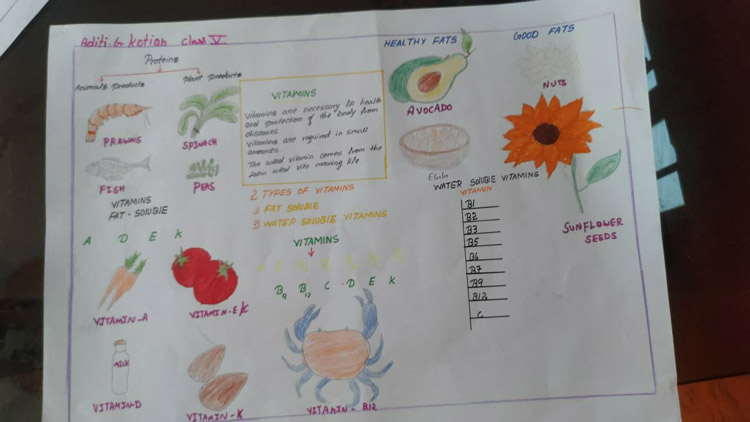 Aditi G. Kotian Class V
Proteins
Animals products
Plant products
PRAWNS
SPINACH
FISH
PEAS
VITAMINS
Vitamins are necessary to health
and protection of the body from
diseases
Vitamins are required in small
amounts.
The word vitamin comes from the
latin word vita meaning life
HEALTHY FATS
GOOD FATS
AVOCADO
NUTS
SUNFLOWER
SEEDS
VITAMINS
FAT-SOLUBIE
A D E K
VITAMIN-A
VITAMIN-E/K
MILK
VITAMIN-D
VITAMIN-K
2 TYPES OF VITAMINS
1) FAT SOLUBIE
2) WATER SOLUBIE VITAMINS
VITAMINS
B9 B12 C D E K
VITAMIN- B12
WATER SOLUBIE VITAMINS
VITAMIN
B1
B2
B3
B5
B6
B7
B9
B12
C